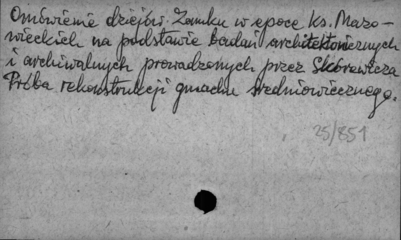 Omówienie dziejów Zamku w epoce ks. Mazo-
wieckich na podstawie badań architektonicznych
i archiwalnych prowadzonych przez Skórewicza
Próba rekonstrukcji gmachu średniowiecznego.
25/851